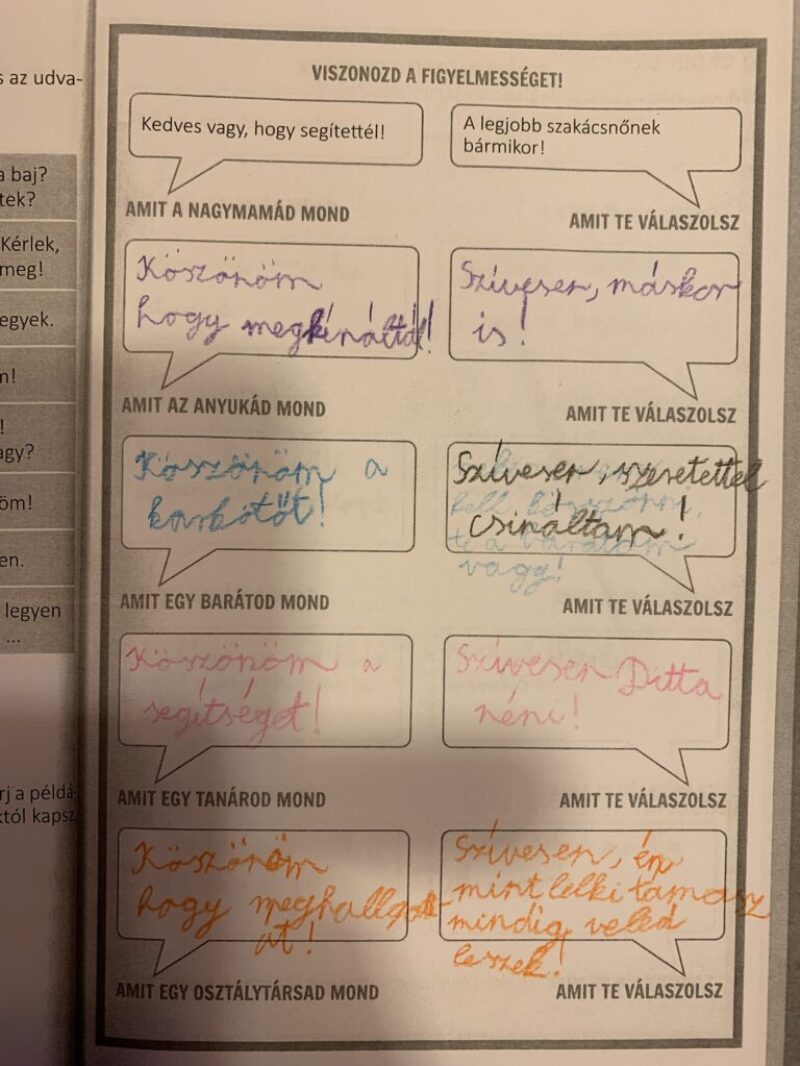 s az udva-
a baj?
tek?
Kérlek,
meg!
egyek.
m!
!
agy?
öm!
en.
legyen
...
rj a példá
któl kapsz
VISZONOZD A FIGYELMESSÉGET!
Kedves vagy, hogy segítettél!
A legjobb szakácsnőnek
bármikor!
AMIT A NAGYMAMÁD MOND
AMIT TE VÁLASZOLSZ
Köszönöm
hogy megkínáltál!
Szívesen, máskor
is!
AMIT AZ ANYUKÁD MOND
AMIT TE VÁLASZOLSZ
Köszönöm a
karkötőt!
Szívesen, szeretettel
csináltam!
vagy!
AMIT EGY BARÁTOD MOND
AMIT TE VÁLASZOLSZ
Köszönöm a
segítséget!
Szívesen Ditta
néni!
AMIT EGY TANÁROD MOND
AMIT TE VÁLASZOLSZ
Köszönöm
hogy meghallgatt-
át!
Szívesen, én
mint lelki támasz
mindig veled
leszek!
AMIT EGY OSZTÁLYTÁRSAD MOND
AMIT TE VÁLASZOLSZ